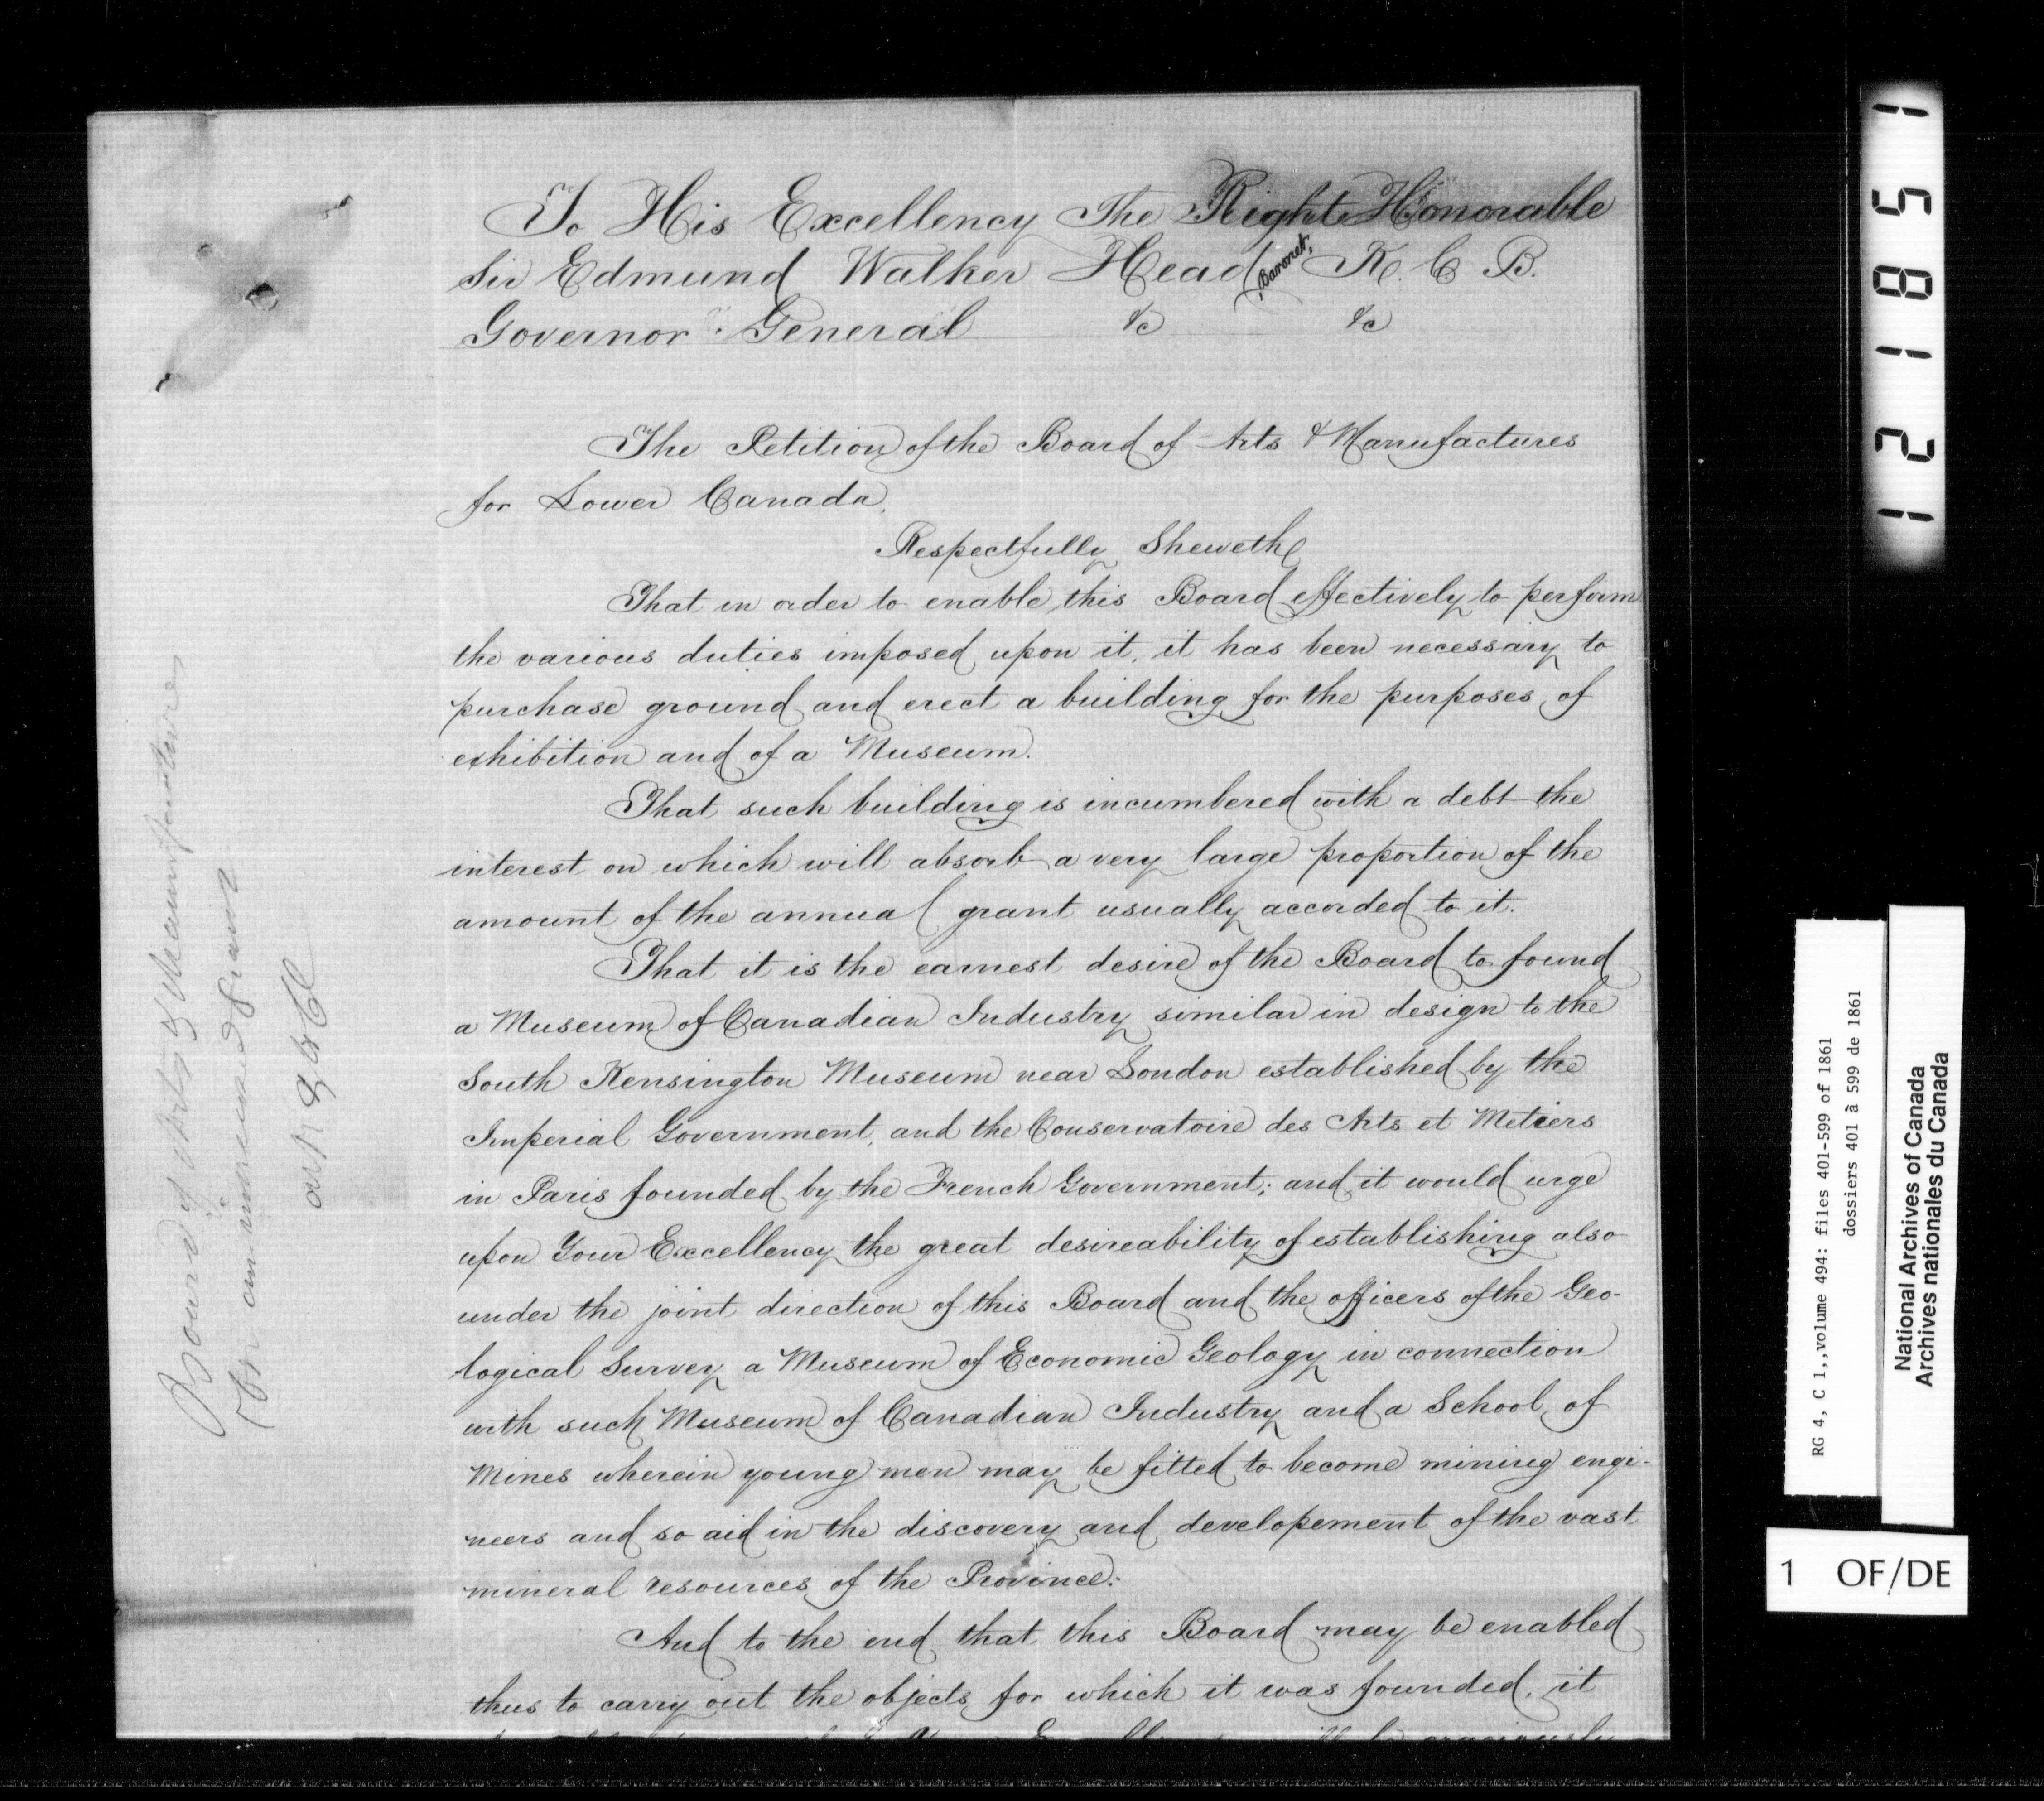 To His Excellency The Right Honorable
Sir Edmund Walker Head, Baronet, K. C. B.
Governor General &c &c
The Petition of the Board of Arts & Manufactures
for Lower Canada.
Respectfully Sheweth
That in order to enable this Board effectively to perform
the various duties imposed upon it, it has been necessary to
purchase ground and erect a building for the purposes of
exhibition and of a Museum.
That such building is incumbered with a debt the
interest on which will absorb a very large proportion of the
amount of the annual grant usually accorded to it.
That it is the earnest desire of the Board to found
a Museum of Canadian Industry similar in design to the
South Kensington Museum near London established by the
Imperial Government, and the Conservatoire des Arts et Metiers
in Paris founded by the French Government; and it would urge
upon Your Excellency the great desireability of establishing also
under the joint direction of this Board and the officers of the Geo-
logical Survey a Museum of Economic Geology in connection
with such Museum of Canadian Industry and a School of
Mines wherein young men may be fitted to become mining engi-
neers and so aid in the discovery and developement of the vast
mineral resources of the Province.
And to the end that this Board may be enabled
thus to carry out the objects for which it was founded, it
Board of Arts & Manufactures
for an increased grant
121851
RG 4, C 1,,volume 494: files 401-599 of 1861
dossiers 401 à 599 de 1861
National Archives of Canada
Archives nationales du Canada
1 OF/DE